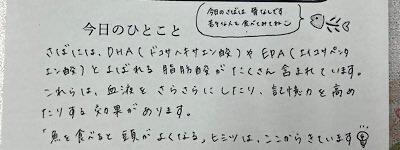 今日のひとこと
今日のさばは 骨なしです
安心なんで食べてみてね
さばには、DHA(ドコサヘキサエン酸)やEPA(エイコサペンタ
エン酸)とよばれる脂肪酸がたくさん含まれています。
これらは、血液をさらさらにしたり、記憶力を高め
たりする効果があります。
「魚を食べると頭がよくなる」ヒミツは、ここからきています